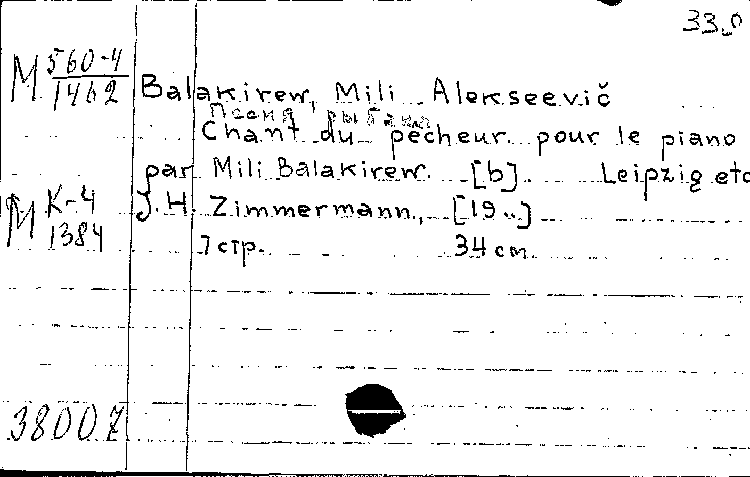 33.0
M 560-4
1462
Balakirew, Mili Alekseevič
Песня рыбака
Chant du pêcheur pour le piano
par Mili Balakirew. [b]. Leipzig etc
M K-4
1384
J. H. Zimmermann, [19..]
7 стр. 34 cm.
38007